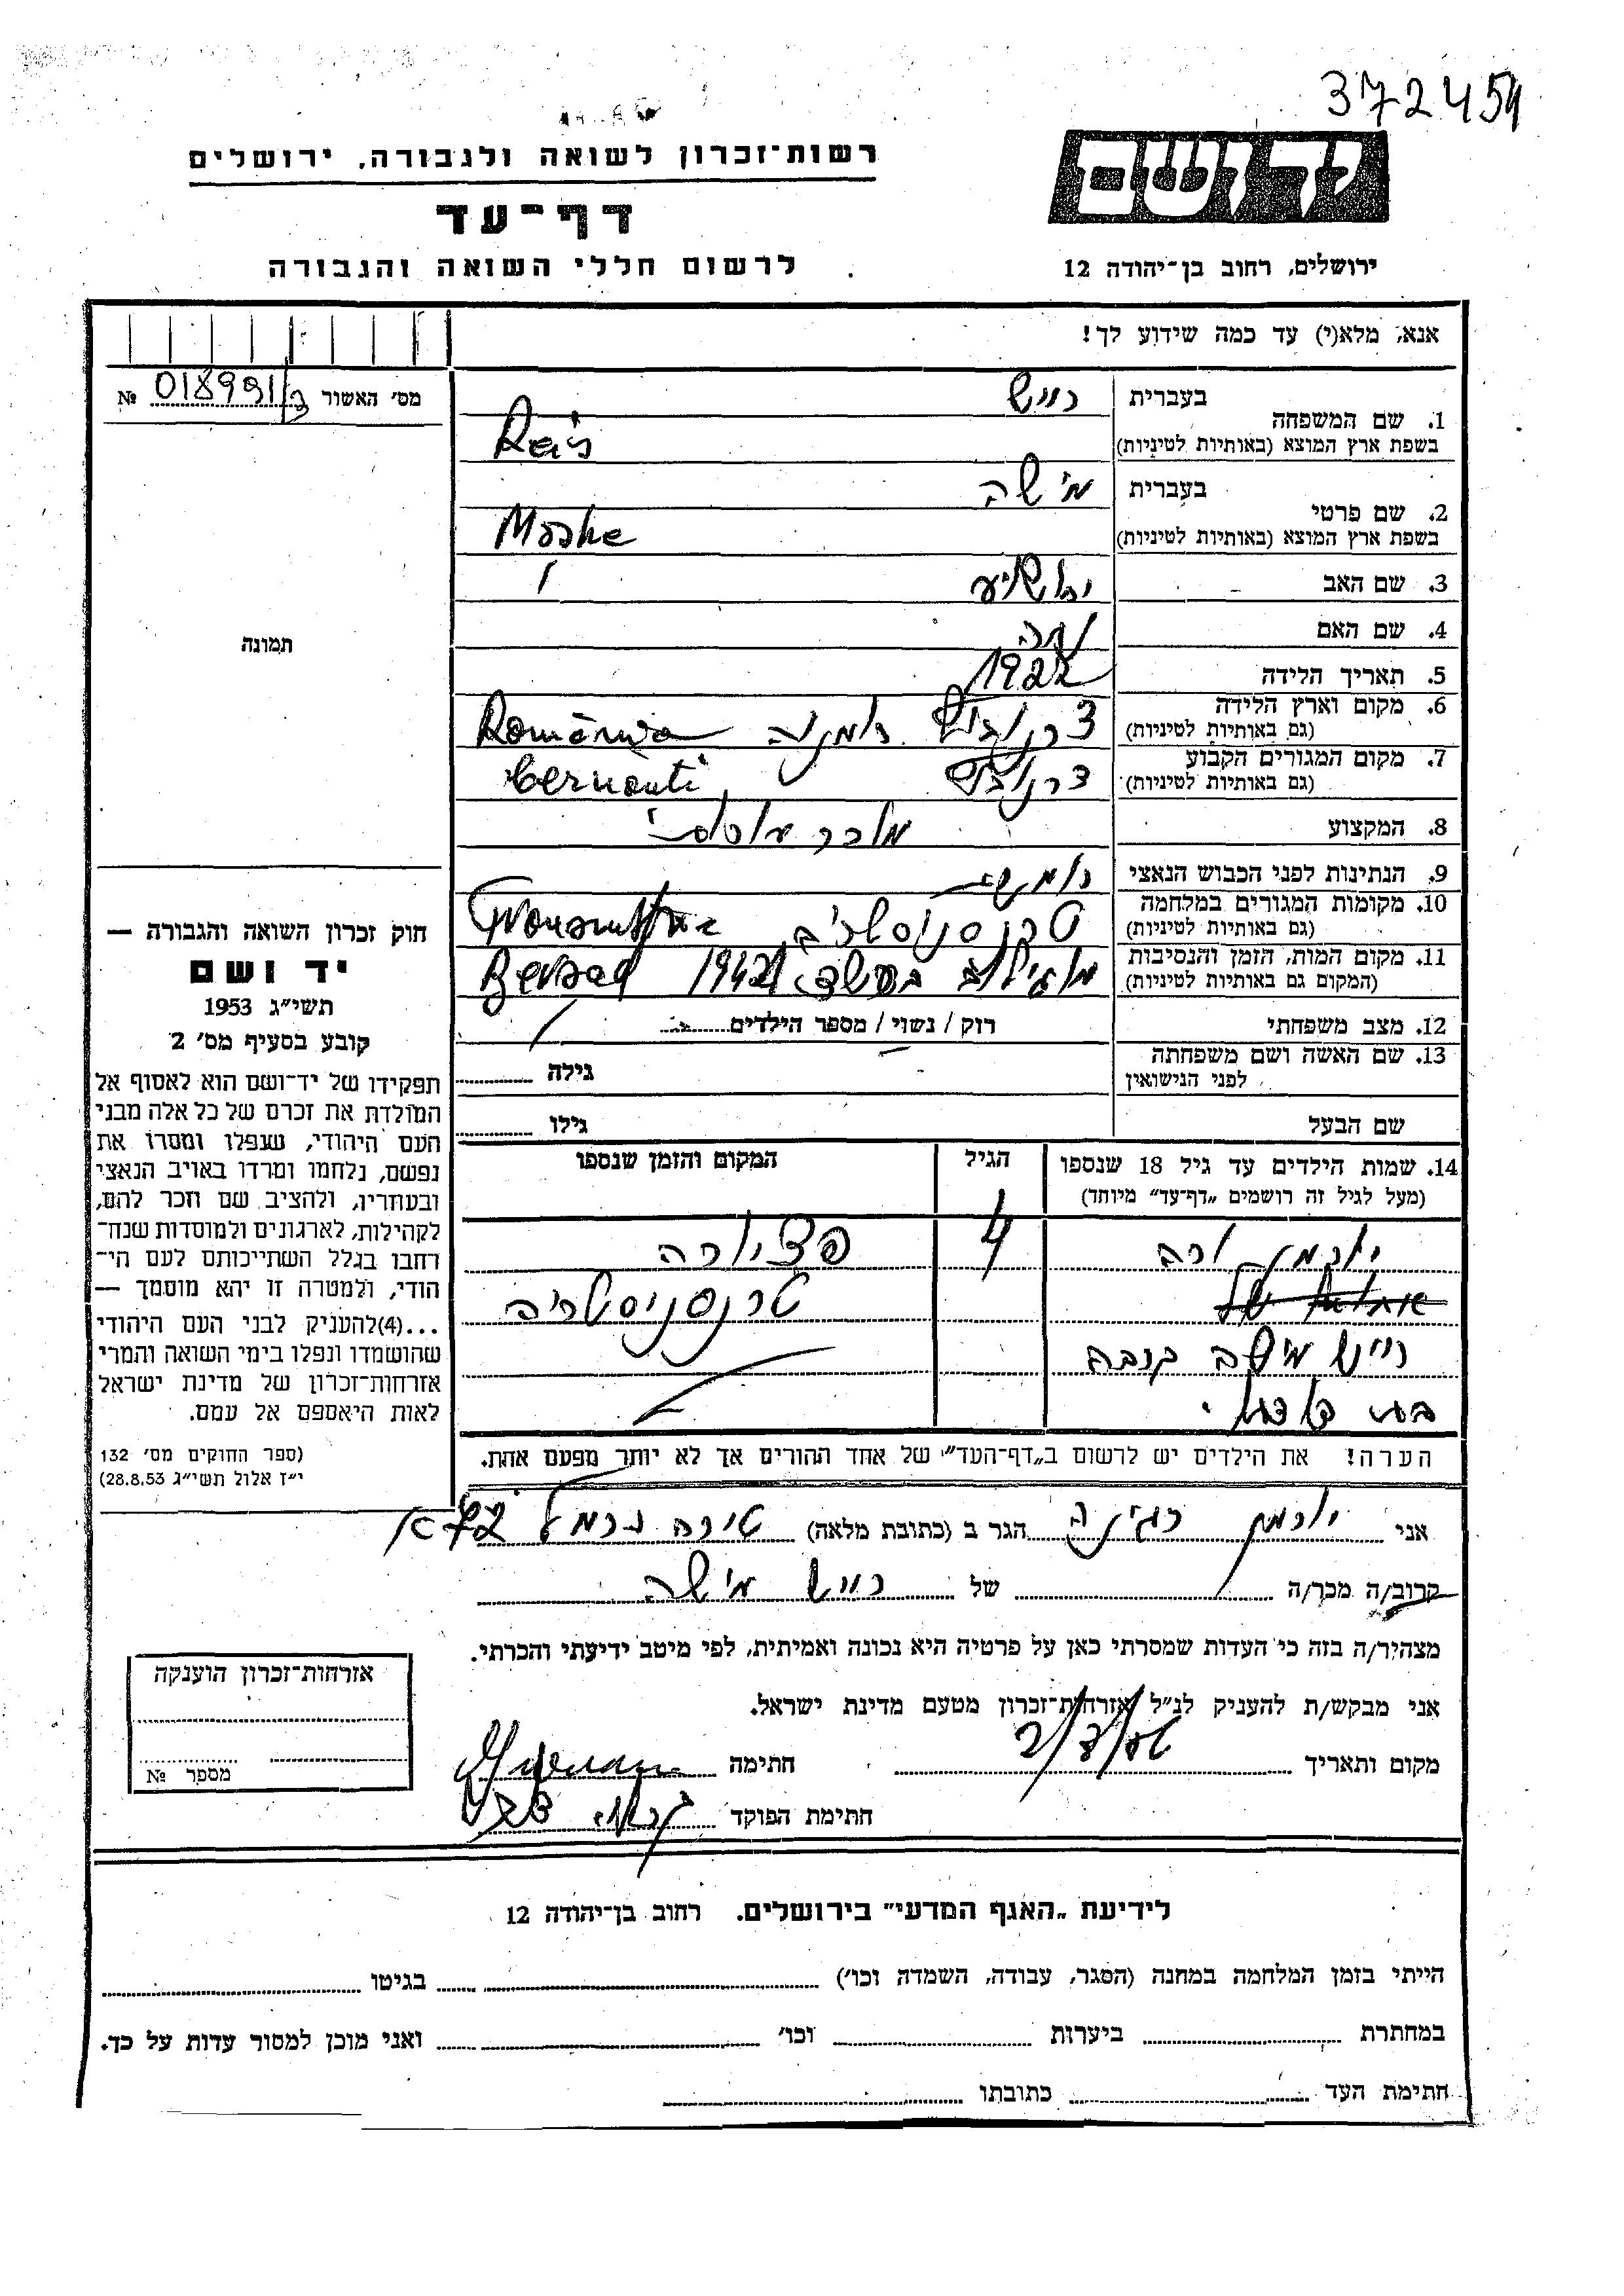 372454
רשות־זכרון לשואה ולגבורה, ירושלים
יד ושם
דף־עד
לרשום חללי השואה והגבורה
ירושלים, רחוב בן־יהודה 12
אנא, מלא(י) עד כמה שידוע לך!
מס׳ האשור № 018991/3
1. שם המשפחה
בעברית רייש
בשפת ארץ המוצא (באותיות לטיניות) Reis
2. שם פרטי
בעברית מישה
בשפת ארץ המוצא (באותיות לטיניות) Moshe
3. שם האב יהושיע
4. שם האם
5. תאריך הלידה 1922
6. מקום וארץ הלידה
(גם באותיות לטיניות) צרנוביץ רומניה România
7. מקום המגורים הקבוע
(גם באותיות לטיניות) צרנוביץ Cernauti
8. המקצוע מוכר
9. הנתינות לפני הכבוש הנאצי
10. מקומות המגורים במלחמה
(גם באותיות לטיניות) טרנסניסטריה
11. מקום המות, הזמן והנסיבות
(המקום גם באותיות לטיניות) 1942 Bersad
12. מצב משפחתי רוק / נשוי / מספר הילדים
13. שם האשה ושם משפחתה
לפני הנישואין גילה
שם הבעל גילו
14. שמות הילדים עד גיל 18 שנספו
(מעל לגיל זה רושמים „דף־עד” מיוחד)
הגיל
המקום והזמן שנספו
יורמן ורה 4 פציורה
טרנסניסטריה
רייש מישה
הערה! את הילדים יש לרשום ב„דף־העד” של אחד ההורים אך לא יותר מפעם אחת.
תמונה
חוק זכרון השואה והגבורה —
יד ושם
תשי״ג 1953
קובע בסעיף מס׳ 2
תפקידו של יד־ושם הוא לאסוף אל
המולדת את זכרם של כל אלה מבני
העם היהודי, שנפלו ומסרו את
נפשם, נלחמו ומרדו באויב הנאצי
ובעוזריו, ולהציב שם וזכר להם,
לקהילות, לארגונים ולמוסדות שנח־
רחבו בגלל השתייכותם לעם הי־
הודי, ולמטרה זו יהא מוסמך —
...(4) להעניק לבני העם היהודי
שהושמדו ונפלו בימי השואה והמרי
אזרחות־זכרון של מדינת ישראל
לאות היאספם אל עמם.
(ספר החוקים מס׳ 132
י״ז אלול תשי״ג 28.8.53)
אני יורמן רגינה הגר ב (כתובת מלאה) טירה כרמל
קרוב/ה מכר/ה של רייש מישה
מצהיר/ה בזה כי העדות שמסרתי כאן על פרטיה היא נכונה ואמיתית, לפי מיטב ידיעתי והכרתי.
אני מבקש/ת להעניק לנ״ל אזרחות־זכרון מטעם מדינת ישראל.
מקום ותאריך חתימה
חתימת הפוקד
אזרחות־זכרון הוענקה
מספר №
לידיעת „האגף המדעי” בירושלים. רחוב בן־יהודה 12
הייתי בזמן המלחמה במחנה (הסגר, עבודה, השמדה וכו׳) בגיטו
במחתרת ביערות וכו׳ ואני מוכן למסור עדות על כך.
חתימת העד כתובתו